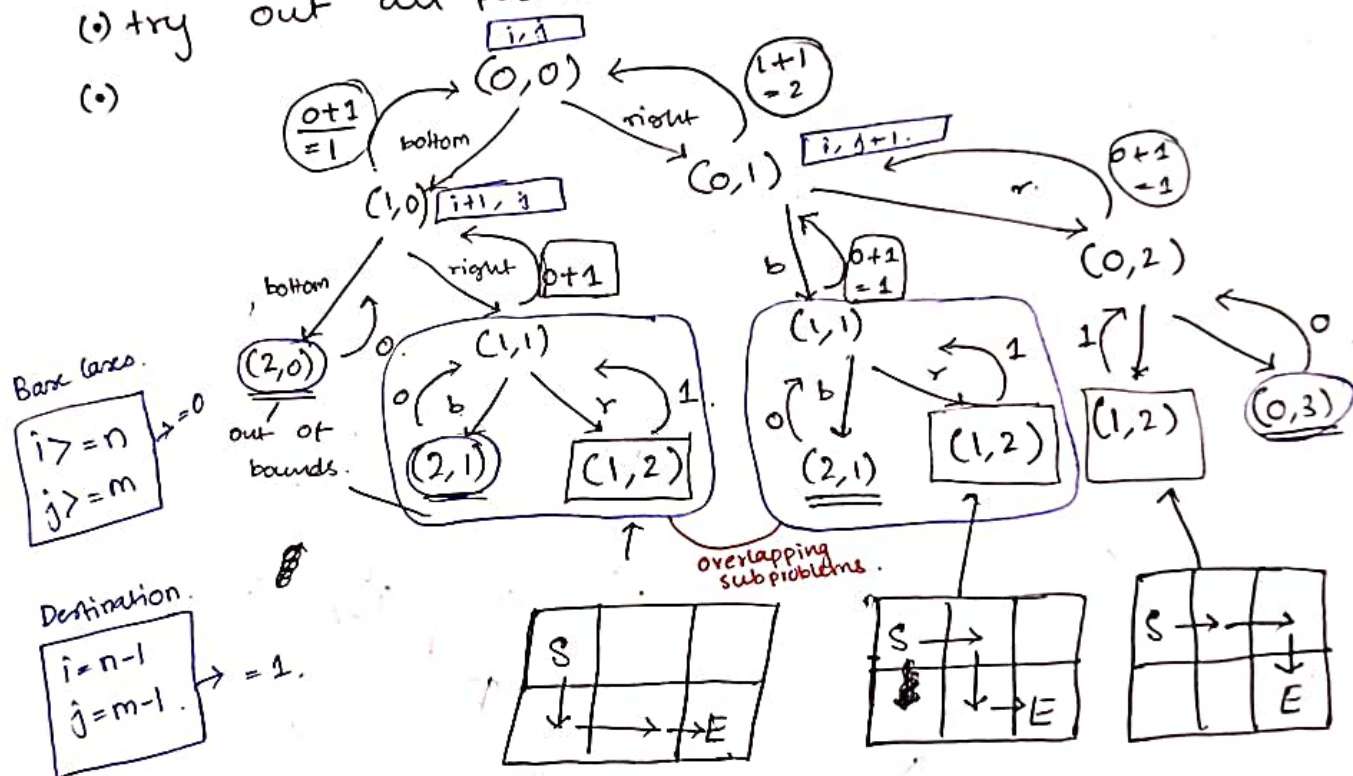 (•) try out all
(•)
i, j
(0,0)
0+1
= 1
bottom
right
1+1
= 2
(0,1)
i, j+1.
r.
0+1
= 1
(1,0)
i+1, j
bottom
right
0+1
b
0+1
= 1
(0,2)
(2,0)
0.
out of
bounds.
(1,1)
0
b
r
1.
(2,1)
(1,2)
(1,1)
0
b
r
1
(2,1)
(1,2)
1
0
(1,2)
(0,3)
overlapping
subproblems.
Base cases.
i>=n
j>=m
=0
Destination.
i=n-1
j=m-1.
= 1.
S
E
S
E
S
E